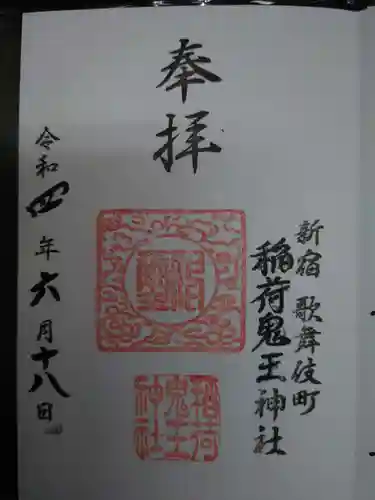 新宿 歌舞伎町
稲荷鬼王神社
奉拝
稲荷
鬼王
神社
令和四年六月十八日